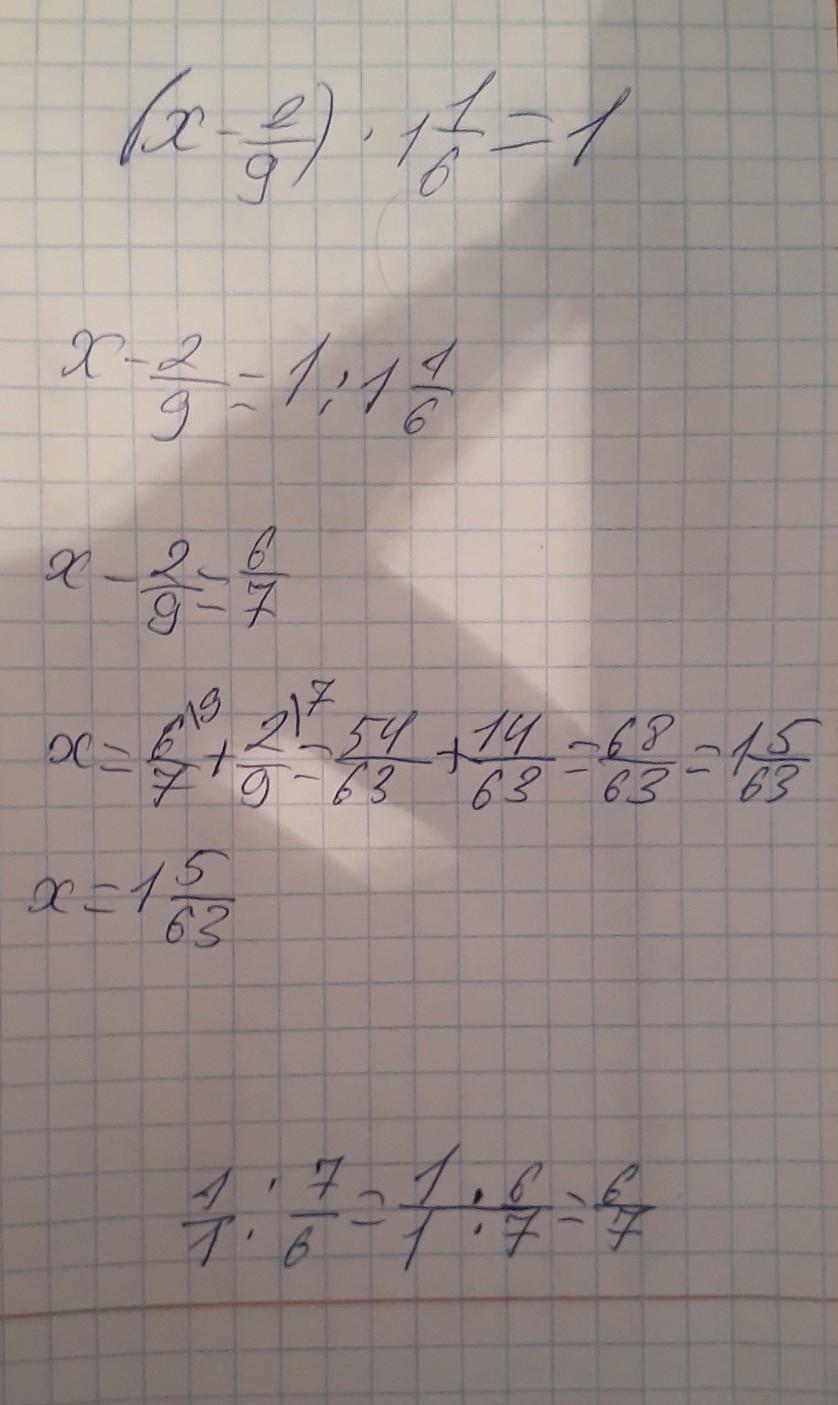 (x - 2/9) · 1 1/6 = 1
x - 2/9 = 1 : 1 1/6
x - 2/9 = 6/7
x = 6/7\9 + 2/9\7 = 54/63 + 14/63 = 68/63 = 1 5/63
x = 1 5/63
1/1 : 7/6 = 1 · 6/1 · 7 = 6/7